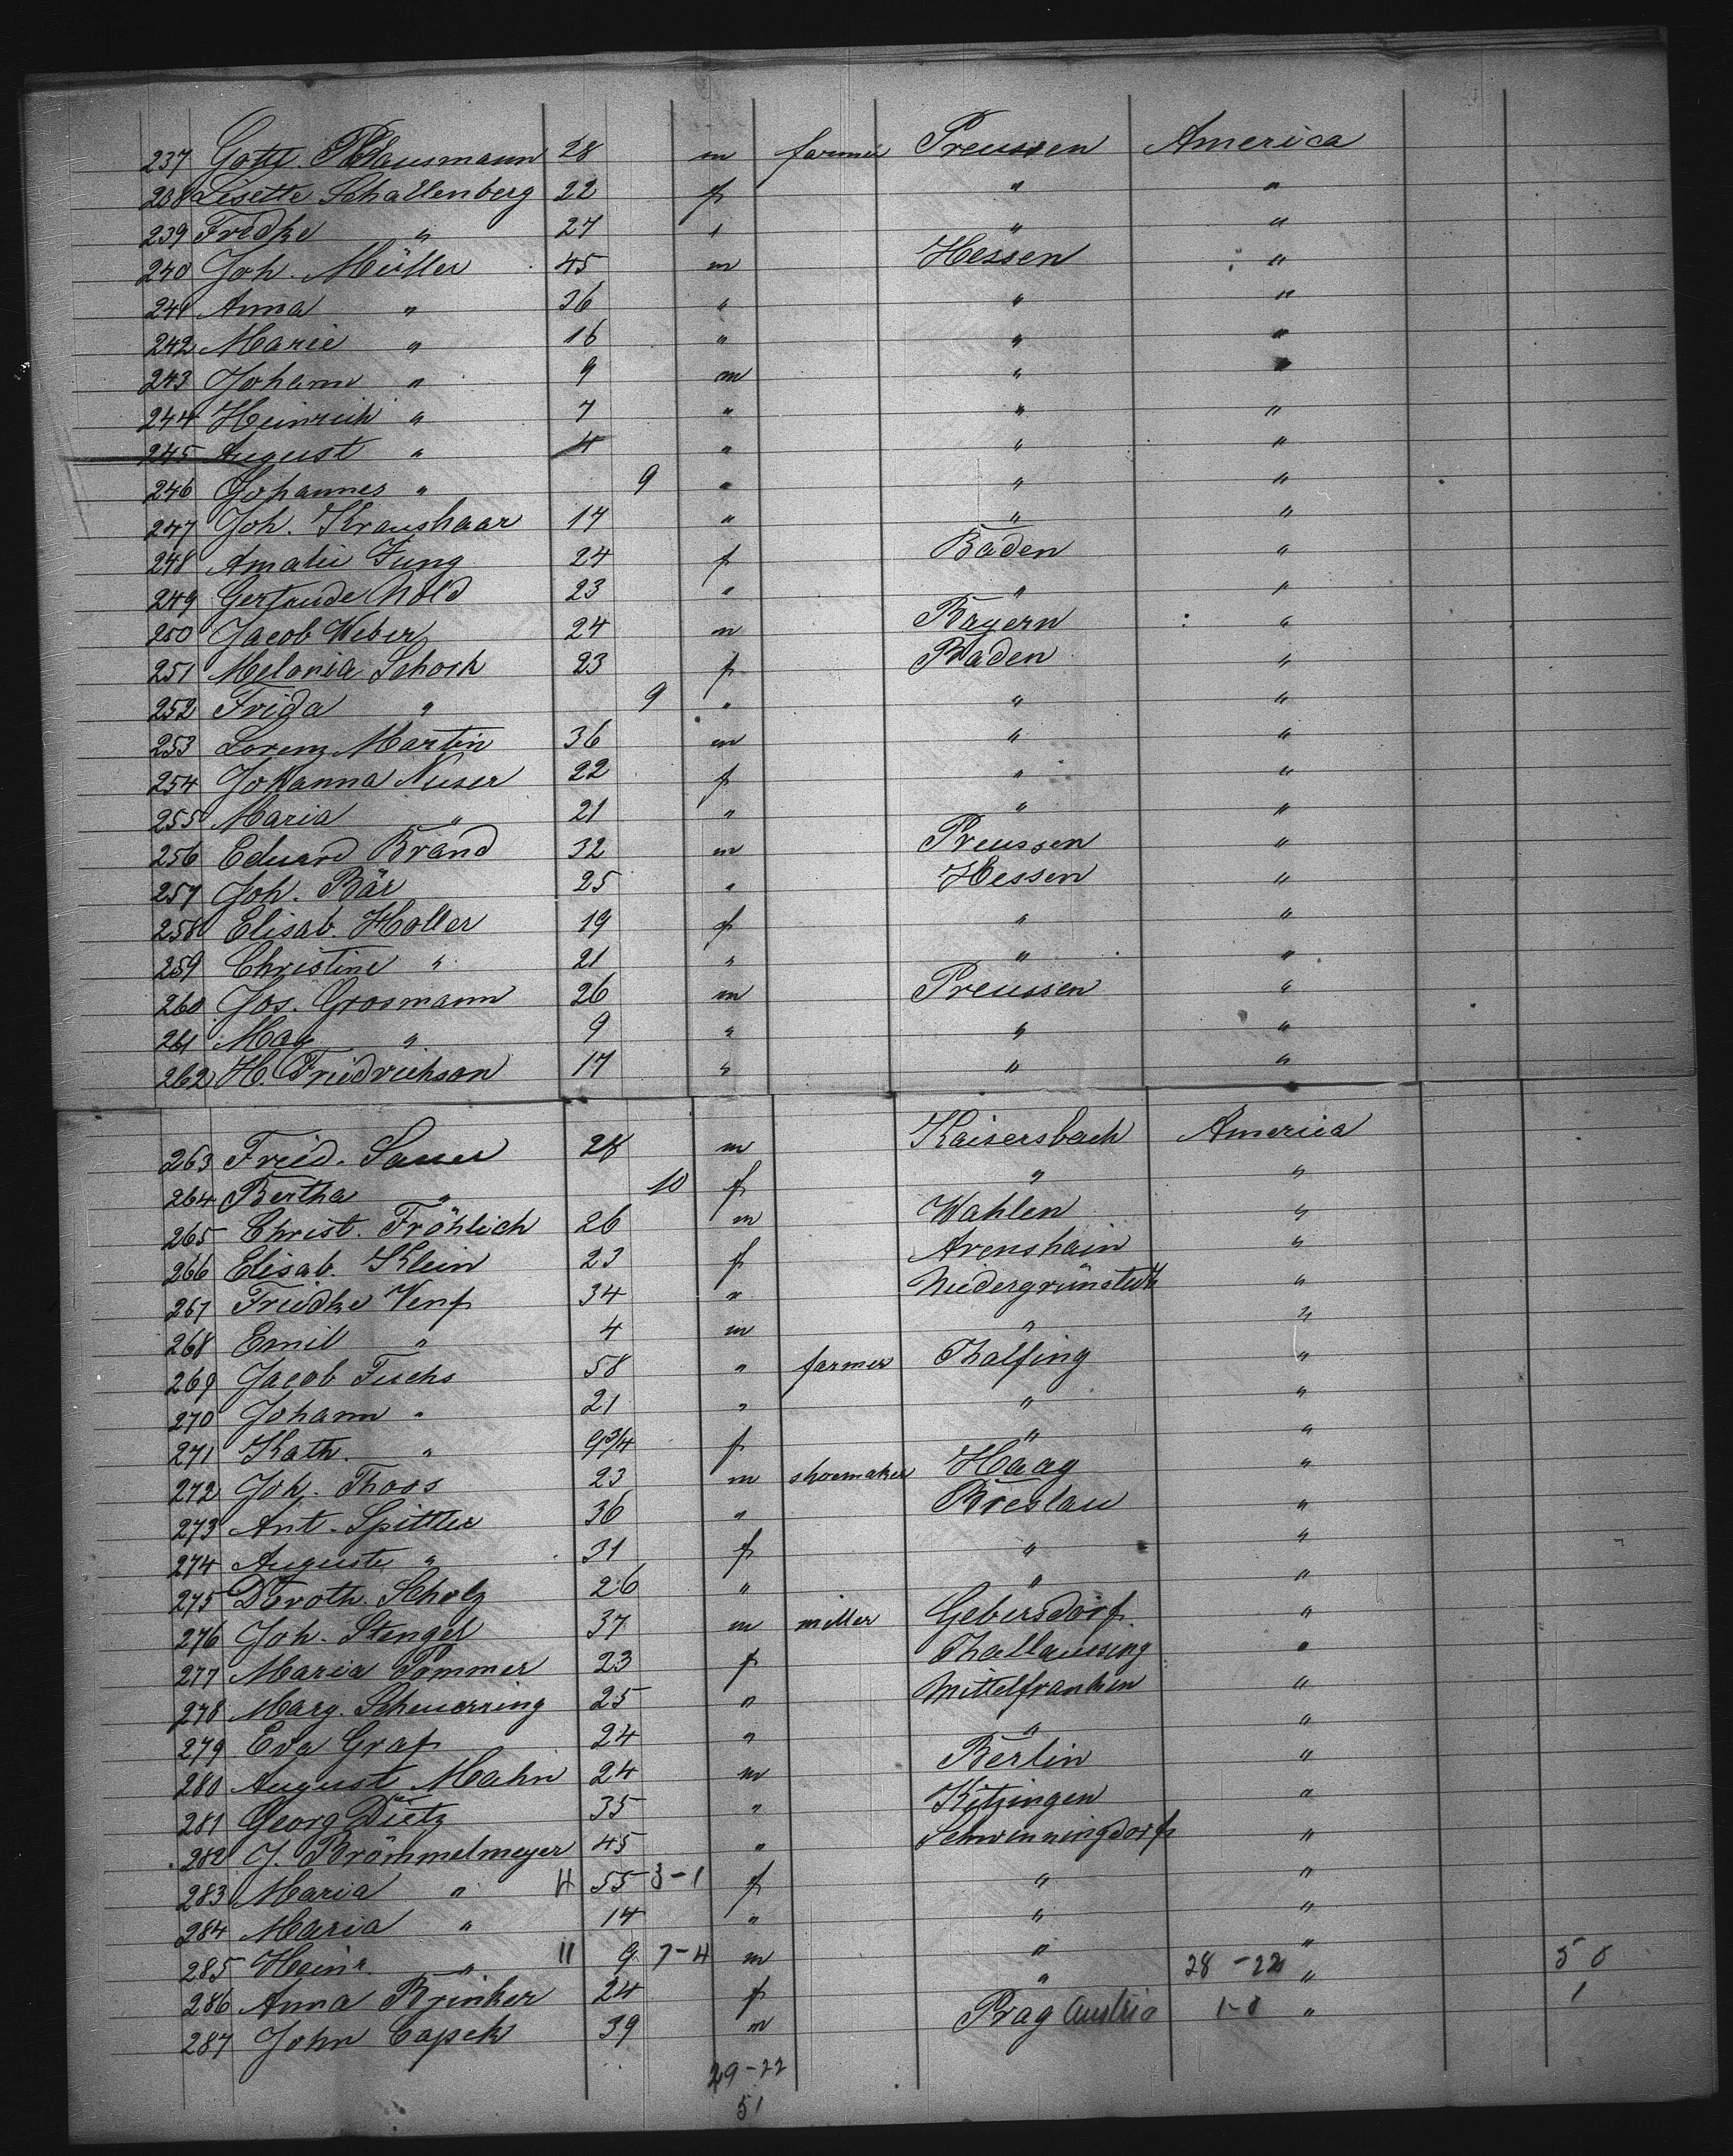 237 Gottl. Plausmann 28 m farmer Preussen America
238 Lisette Schallenberg 22 f " "
239 Fredke " 27 " " "
240 Joh. Müller 45 m Hessen "
241 Anna " 36 " " "
242 Marie " 16 " " "
243 Johann " 9 m " "
244 Heinrich " 7 " " "
245 August " 4 " " "
246 Johannes " 9 " " "
247 Joh. Kraushaar 17 " " "
248 Amalie Jung 24 f Baden "
249 Gertrude Nold 23 " " "
250 Jacob Weber 24 m Bayern "
251 Melania Schork 23 f Baden "
252 Frida " 9 " " "
253 Lorenz Martin 36 m " "
254 Johanna Nuser 22 f " "
255 Maria " 21 " " "
256 Eduard Brand 32 m Preussen "
257 Joh. Bär 25 " Hessen "
258 Elisab. Holler 19 f " "
259 Christine " 21 " " "
260 Jos. Grosmann 26 m Preussen "
261 Max " 9 " " "
262 H. Friedrichson 17 " " "
263 Fried. Sauer 28 m Kaisersbach America
264 Bertha " 10 f " "
265 Christ. Fröhlich 26 m Wahlen "
266 Elisab. Klein 23 f Arenshain "
267 Friedke Venf 34 " Niedergrünstedt "
268 Emil " 4 m " "
269 Jacob Fuchs 58 " farmer Thalfing "
270 Johann " 21 " " "
271 Kath. " 9 3/4 f " "
272 Joh. Thoos 23 m shoemaker Haag "
273 Ant. Spittler 36 " Breslau "
274 Auguste " 31 f " "
275 Doroth. Scholz 26 " " "
276 Joh. Stengel 37 m miller Gebersdorf "
277 Maria Pommer 23 f Thallaussing "
278 Marg. Scheuerring 25 " Mittelfranken "
279 Eva Graf 24 " " "
280 August Mahn 24 m Berlin "
281 Georg Dietz 35 " Kitzingen "
282 J. Brömmelmeyer 45 " Schwenningdorf "
283 Maria " 4 55 3-1 f " "
284 Maria " 14 " " "
285 Heinr. " 11 9 7-4 m " "
286 Anna Brinker 24 f " 28-22 " 50
287 John Capek 39 m Prag Austria 1-0 " 1
29-22
51